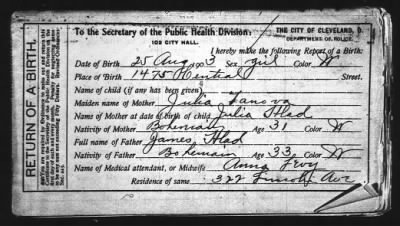 To the Secretary of the Public Health Division:
THE CITY OF CLEVELAND, O.
DEPARTMENT OF POLICE.
103 CITY HALL.
I hereby make the following Report of a Birth:
Date of Birth 25 Aug 1903 Sex girl Color W
Place of Birth 1475 Central Street.
Name of child (if any has been given)
Maiden name of Mother Julia Vanova
Name of Mother at date of birth of child Julia Hlad
Nativity of Mother Bohemian Age 31 Color W
Full name of Father James Hlad
Nativity of Father Bohemain Age 33 Color W
Name of Medical attendant, or Midwife Anna Levy
Residence of same 322 Lincoln Ave
RETURN OF A BIRTH.